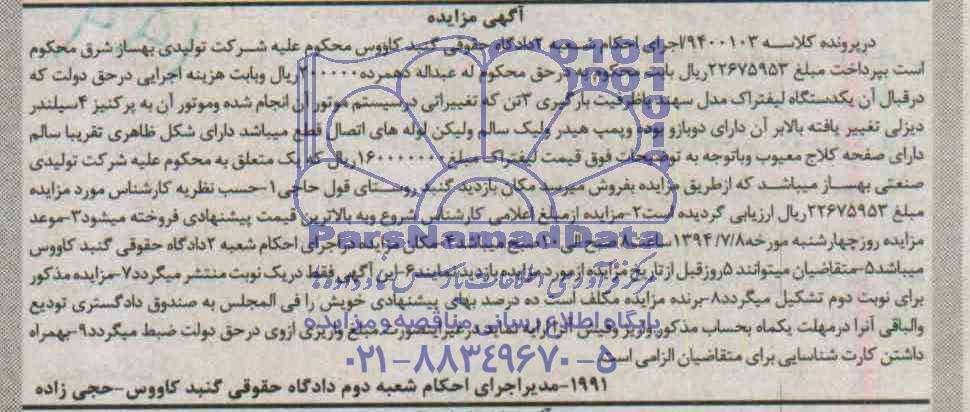 آگهی مزایده
درپرونده کلاسه ۹۴۰۰۱۰۳/اجرای احکام شعبه ۲دادگاه حقوقی گنبد کاووس محکوم علیه شرکت تولیدی بهساز شرق محکوم
است بپرداخت مبلغ ۲۲۶۷۵۹۵۳ریال بابت محکوم به درحق محکوم له عبداله دهمرده ریال وبابت هزینه اجرایی درحق دولت که
درقبال آن یکدستگاه لیفتراک مدل سهند باظرفیت بارگیری ۳تن که تغییراتی درسیستم موتور آن انجام شده وموتور آن به پرکنیز ۴سیلندر
دیزلی تغییر یافته بالابر آن دارای دوبازو بوده وپمپ هیدر ولیک سالم ولیکن لوله های اتصال قطع میباشد دارای شکل ظاهری تقریبا سالم
دارای صفحه کلاج معیوب وباتوجه به توضیحات فوق قیمت لیفتراک مبلغ ۱۶۰۰۰۰۰۰۰ریال که یک متعلق به محکوم علیه شرکت تولیدی
صنعتی بهساز میباشد که ازطریق مزایده بفروش میرسد مکان بازدید گنبد روستای قول حاجی۱-حسب نظریه کارشناس مورد مزایده
مبلغ ۲۲۶۷۵۹۵۳ریال ارزیابی گردیده است۲-مزایده ازمبلغ اعلامی کارشناس شروع وبه بالاترین قیمت پیشنهادی فروخته میشود۳-موعد
مزایده روزچهارشنبه مورخه۱۳۹۴/۷/۸ساعت۸ صبح الی ۱۰صبح میباشد۴-مکان مزایده دراجرای احکام شعبه ۲دادگاه حقوقی گنبد کاووس
میباشد۵-متقاضیان میتوانند ۵روزقبل ازتاریخ مزایده ازمورد مزایده بازدید نمایند۶-این آگهی فقط دریک نوبت منتشر میگردد۷-مزایده مذکور
برای نوبت دوم تشکیل میگردد۸-برنده مزایده مکلف است ده درصد بهای پیشنهادی خویش را فی المجلس به صندوق دادگستری تودیع
والباقی آنرا درمهلت یکماه بحساب مذکور واریز وفیش آنرا ارایه نماید درغیراینصورت مبلغ واریزی ازوی درحق دولت ضبط میگردد۹-بهمراه
داشتن کارت شناسایی برای متقاضیان الزامی است
۱۹۹۱-مدیراجرای احکام شعبه دوم دادگاه حقوقی گنبد کاووس-حجی زاده
ParsNamadData
پایگاه اطلاع رسانی مناقصه و مزایده
۰۲۱-۸۸۳۴۹۶۷۰-۵